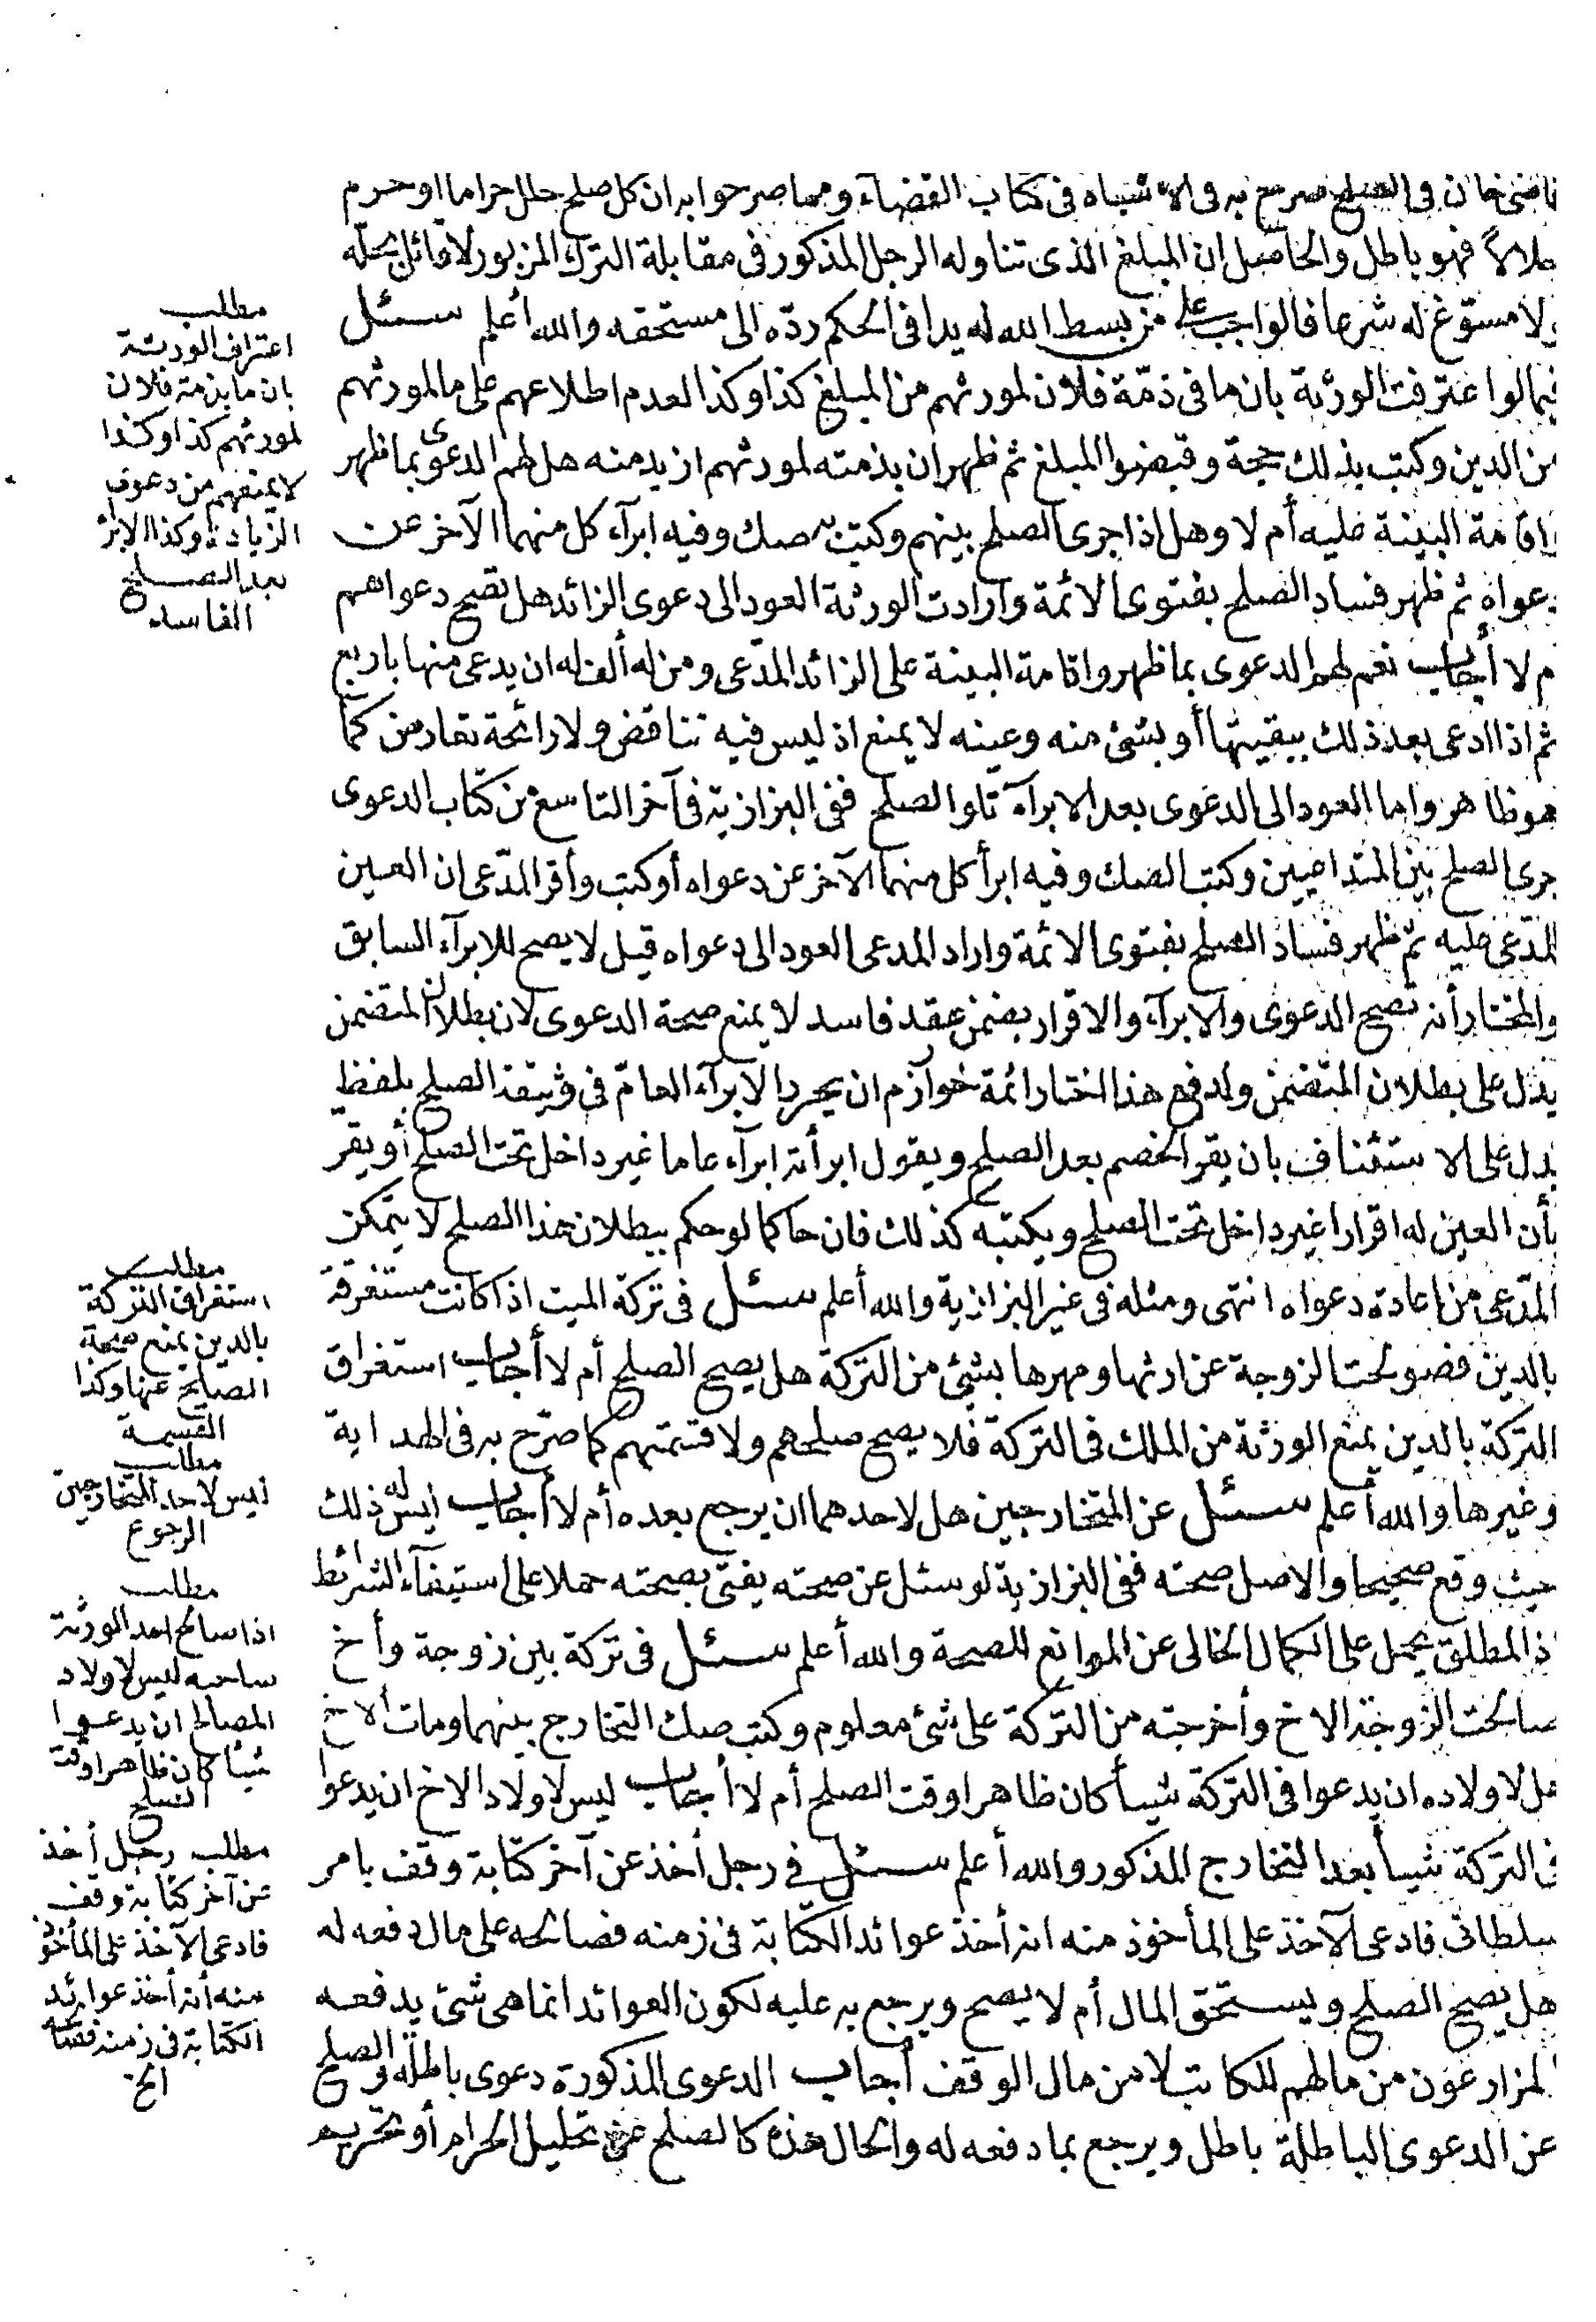 قاضى خان فى الصلح صرح به فى الاشباه فى كتاب القضاء ومما صرحوا به ان كل صلح حلل حراما أو حرم
حلالاً فهو باطل والحاصل ان المبلغ الذى تناوله الرجل المذكور فى مقابلة الترك المزبور لا قائل بحله
ولا مسوّغ له شرعا فالواجب على من بسط الله له يدا فى الحكم ردّه الى مستحقه والله أعلم سئل
فيما لو اعترفت الورثة بان ما فى ذمّة فلان لمورثهم من المبلغ كذا وكذا لعدم اطلاعهم على ما لمورثهم
من الدين وكتب بذلك حجة وقبضوا المبلغ ثم ظهر ان بذمته لمورثهم ازيد منه هل لهم الدعوى بما ظهر
واقامة البينة عليه أم لا وهل اذا جرى الصلح بينهم وكتب به صك وفيه ابرآء كل منهما الآخر عن
دعواه ثم ظهر فساد الصلح بفتوى الائمة وارادت الورثة العود الى دعوى الزائد هل تصح دعواهم
أم لا أجاب نعم لهم الدعوى بما ظهر واقامة البينة على الزائد المدّعى ومن له ألف له ان يدعى منها باربع
ثم اذا ادعى بعد ذلك ببقيتها أو بشئ منه وعينه لا يمنع اذ ليس فيه تناقض ولا رائحة تعارض كما
هو ظاهر واما العود الى الدعوى بعد الابرآء تلو الصلح ففى البزازية فى آخر التاسع من كتاب الدعوى
جرى الصلح بين المتداعيين وكتب الصك وفيه ابرأ كل منهما الآخر عن دعواه أو كتب وأقر المدّعى ان العين
للمدّعى عليه ثم ظهر فساد الصلح بفتوى الائمة واراد المدعى العود الى دعواه قيل لا يصح للابرآء السابق
والمختار أنه تصح الدعوى والابرآء والاقرار بضمن عقد فاسد لا يمنع صحة الدعوى لان بطلان المتضمن
يدل على بطلان المتضمن ولدفع هذا اختار ائمة خوارزم ان يحرر الابرآء العام فى وثيقة الصلح بلفظ
يدل على الاستئناف بان يقر الخصم بعد الصلح ويقول ابرأته ابرآء عاما غير داخل تحت الصلح أو يقر
بأن العين له اقرارا غير داخل تحت الصلح ويكتبه كذلك فان حاكما لو حكم ببطلان هذا الصلح لا يتمكن
المدّعى من اعادة دعواه انتهى ومثله فى غير البزازية والله أعلم سئل فى تركة الميت اذا كانت مستغرقة
بالدين فصولحت الزوجة عن ارثها ومهرها بشئ من التركة هل يصح الصلح أم لا أجاب استغراق
التركة بالدين يمنع الورثة من الملك فى التركة فلا يصح صلحهم ولا قسمتهم كما صرّح به فى الهداية
وغيرها والله أعلم سئل عن المتخارجين هل لاحدهما ان يرجع بعده أم لا أجاب ليس له ذلك
حيث وقع صحيحا والاصل صحته ففى البزازية لو سئل عن صحته يفتى بصحته حملا على استيفآء الشرائط
اذ المطلق يحمل على الكمال الخالى عن الموانع للصحة والله أعلم سئل فى تركة بين زوجة وأخ
صالحت الزوجة الاخ وأخرجته من التركة على شئ معلوم وكتب صك التخارج بينهما ومات الاخ
هل لاولاده ان يدعوا فى التركة شيأ كان ظاهرا وقت الصلح أم لا أجاب ليس لاولاد الاخ ان يدعوا
فى التركة شيأ بعد التخارج المذكور والله أعلم سئل فى رجل أخذ عن آخر كتابة وقف بامر
سلطانى فادعى الآخذ على المأخوذ منه انه أخذ عوائد الكتابة فى زمنه فصالحه على مال دفعه له
هل يصح الصلح ويستحق المال أم لا يصح ويرجع به عليه لكون العوائد انما هى شئ يدفعه
المزارعون من مالهم للكاتب لا من مال الوقف أجاب الدعوى المذكورة دعوى باطلة والصلح
عن الدعوى الباطلة باطل ويرجع بما دفعه له والحال هذه كالصلح عن تحليل الحرام أو تحريم
مطلب
اعتراف الورثة
بان ما بذمة فلان
لمورثهم كذا وكذا
لا يمنعهم من دعوى
الزيادة وكذا الابرآء
بعد الصلح
الفاسد
مطلب
استغراق التركة
بالدين يمنع صحة
الصلح عنها وكذا
القسمة
مطلب
ليس لاحد المتخارجين
الرجوع
مطلب
اذا صالح احد الورثة
صاحبه ليس لاولاد
المصالح ان يدعوا
شيأ كان ظاهرا وقت
الصلح
مطلب رجل أخذ
عن آخر كتابة وقف
فادعى الآخذ على المأخوذ
منه أنه أخذ عوائد
الكتابة فى زمنه فصالحه
الخ